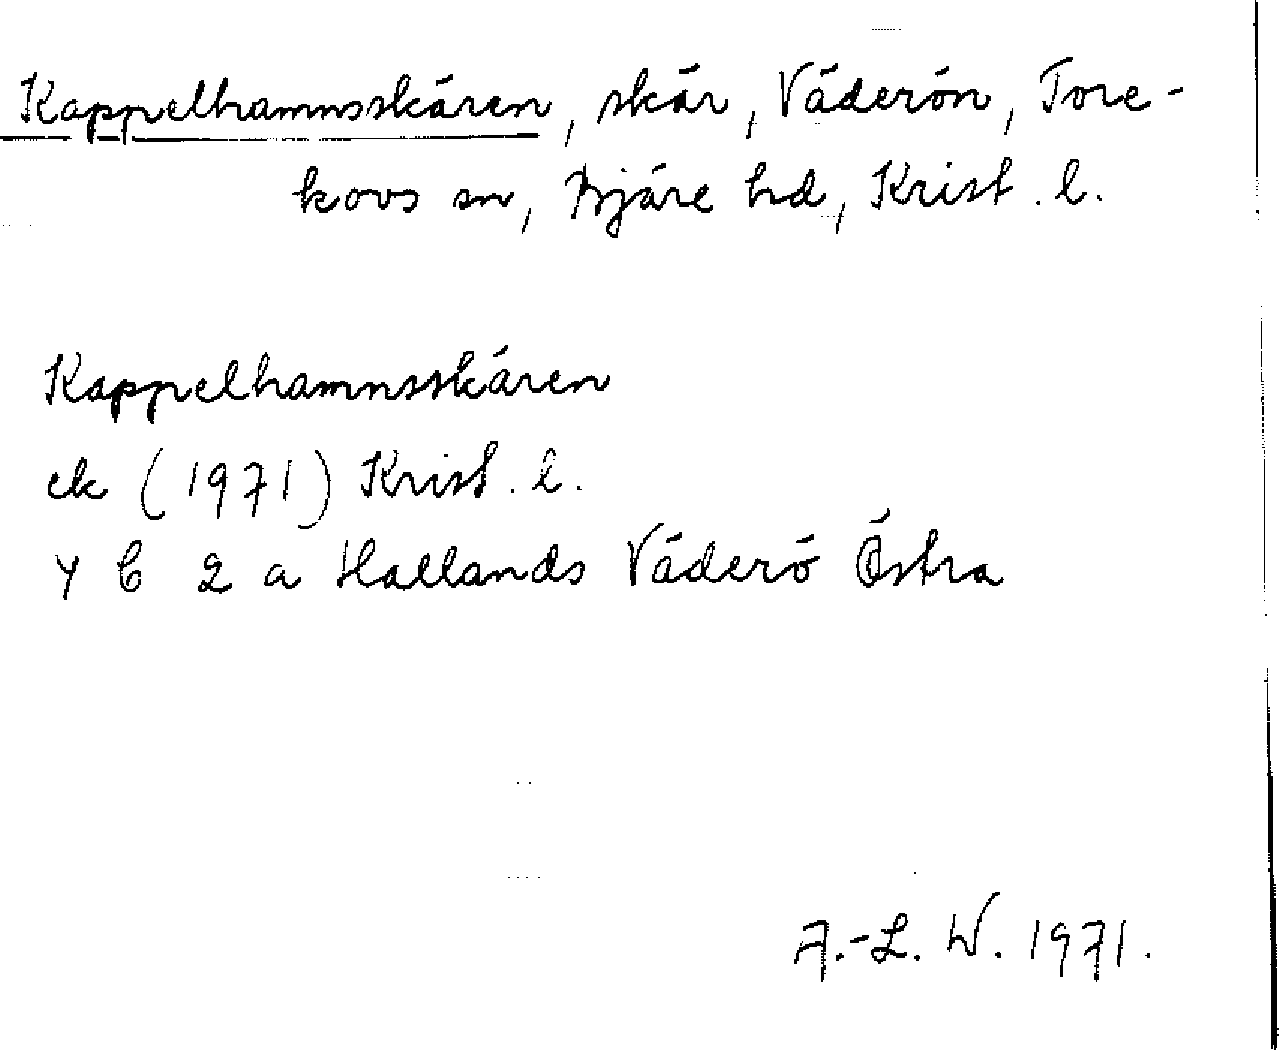 Kappelhamnsskären, skär, Väderön, Tore-
kovs sn, Bjäre hd, Krist. l.
Kappelhamnsskären
ek (1971) Krist. l.
4 C 2 a Hallands Väderö Östra
A.-L. W. 1971.